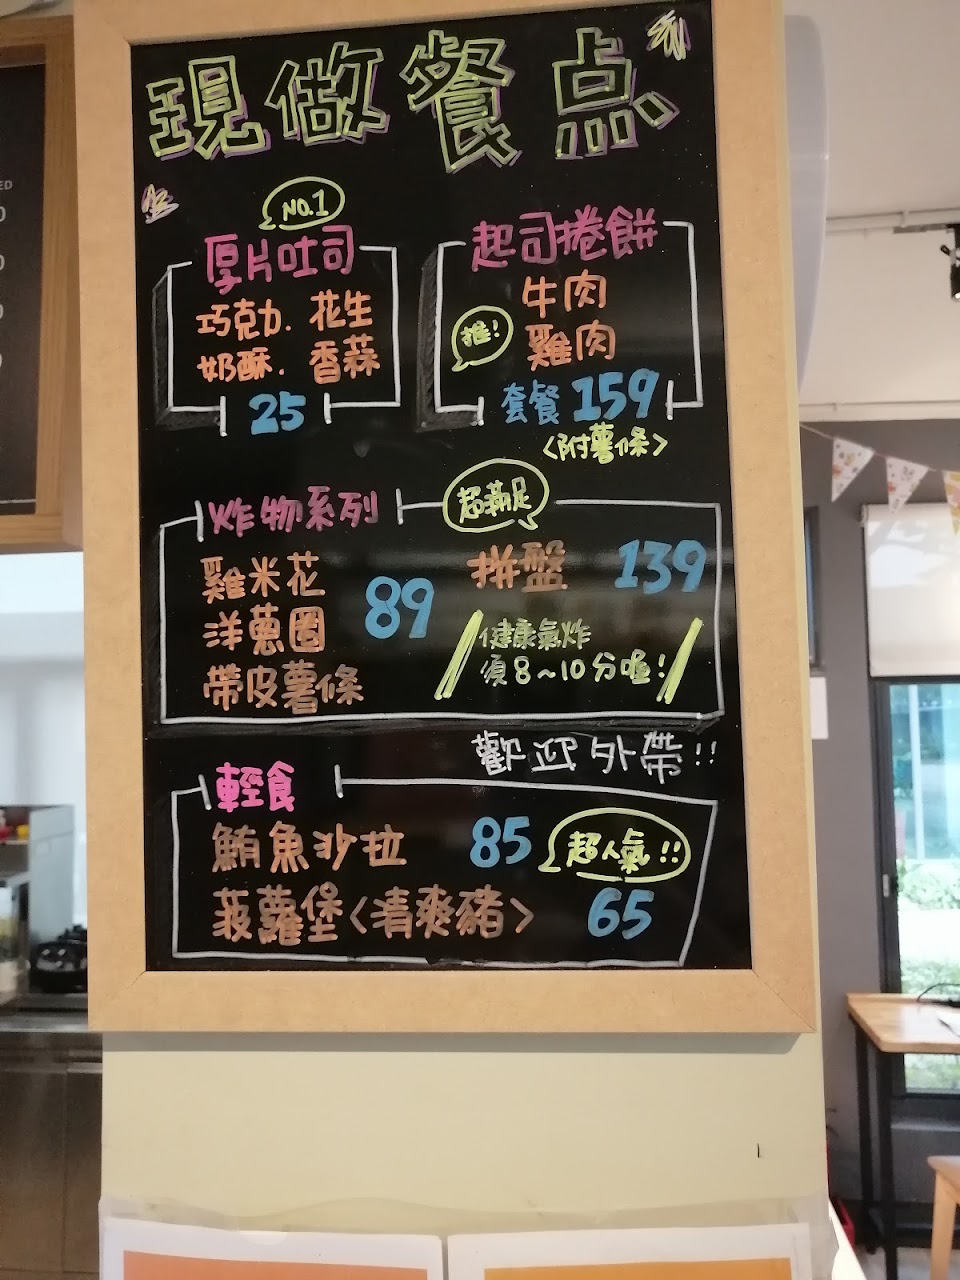 現做餐点
NO.1
厚片吐司
巧克力. 花生
奶酥. 香蒜
25
起司捲餅
牛肉
推!
雞肉
套餐 159
<附薯條>
炸物系列
超滿足
雞米花
洋蔥圈
帶皮薯條
89
拼盤 139
健康氣炸
須8~10分喔!
歡迎外帶!!
輕食
鮪魚沙拉 85
超人氣!!
菠蘿堡<清爽豬> 65
ED